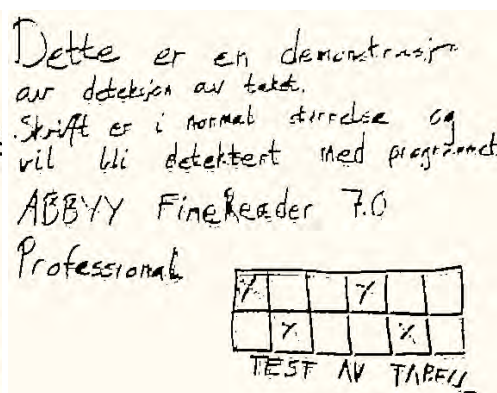 Dette er en demonstrasjon
av deteksjon av tekst.
Skrift er i normal størrelse og
vil bli detektert med programmet
ABBYY FineReader 7.0
Professional
TEST AV TABELL